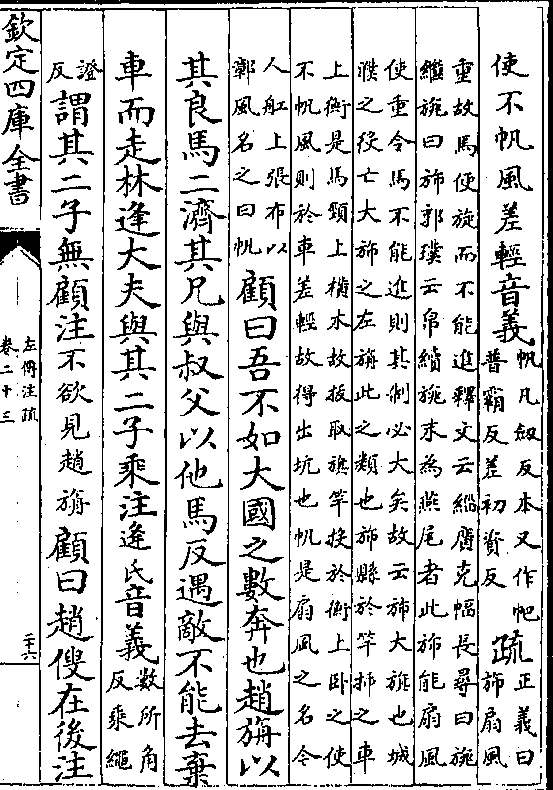 使不帆風差輕音義
帆凡劔反本又作帊
普霸反差初賣反
疏
正義曰
斾扇風
重故馬便旋而不能進釋文云緇廣充幅長尋曰旐
繼旐曰斾郭璞云帛續旐末為燕尾者此斾能扇風
使重令馬不能進則其制必大矣故云斾大旗也城
濮之役亡大斾之左旃此之類也斾縣於竿揷之車
上衡是馬頸上橫木故拔取旗竿投於衡上卧之使
不帆風則於車差輕故得出坑也帆是扇風之名今
人舡上張布以
鄣風名之曰帆
顧曰吾不如大國之數奔也趙旃以
其良馬二濟其兄與叔父以他馬反遇敵不能去棄
車而走林逢大夫與其二子乘注逢氏音義
數所角
反乘繩
證
反
謂其二子無顧注不欲見趙旃顧曰趙傁在後注
欽定四庫全書
左傳注疏
卷二十三
二十六